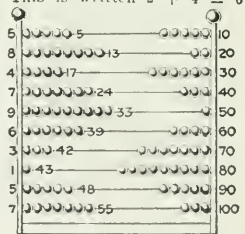 This is written 2 + 4 = 6
5 5 10
8 13 20
4 17 30
7 24 40
9 33 50
6 39 60
3 42 70
1 43 80
5 48 90
7 55 100